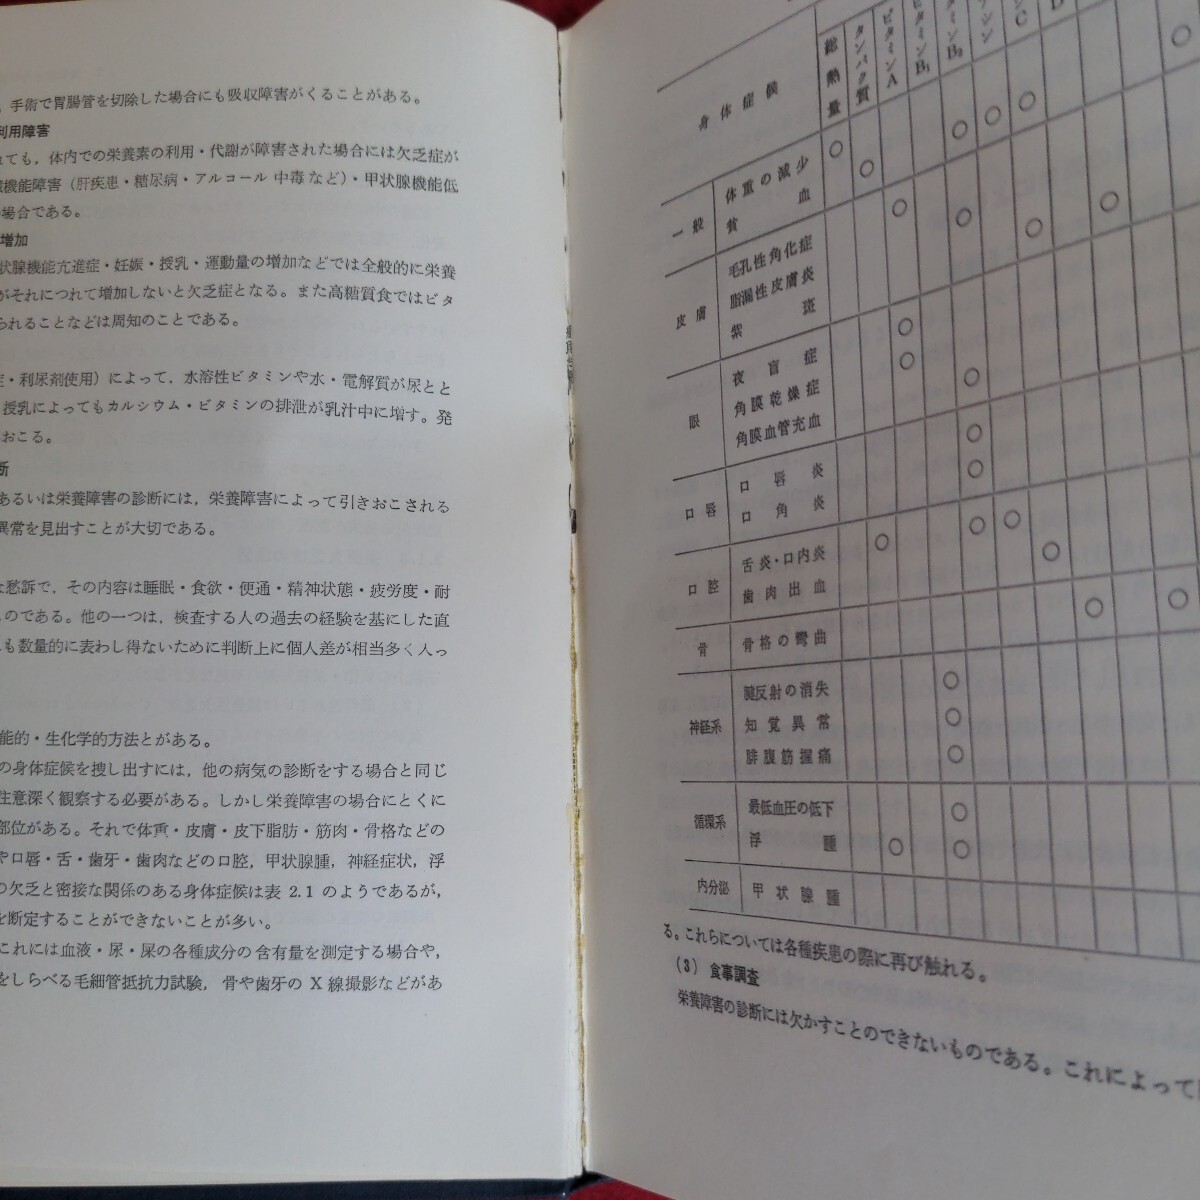 手術で胃腸管を切除した場合にも吸収障害がくることがある。
利用障害
れても，体内での栄養素の利用・代謝が障害された場合には欠乏症が
機能障害（肝疾患・糖尿病・アルコール中毒など）・甲状腺機能低
場合である。
増加
状腺機能亢進症・妊娠・授乳・運動量の増加などでは全般的に栄養
がそれにつれて増加しないと欠乏症となる。また高糖質食ではビタ
られることなどは周知のことである。
・利尿剤使用）によって，水溶性ビタミンや水・電解質が尿とと
授乳によってもカルシウム・ビタミンの排泄が乳汁中に増す。発
おこる。
断
あるいは栄養障害の診断には，栄養障害によって引きおこされる
異常を見出すことが大切である。
な愁訴で，その内容は睡眠・食欲・便通・精神状態・疲労度・耐
のである。他の一つは，検査する人の過去の経験を基にした直
も数量的に表わし得ないために判断上に個人差が相当多く入っ
能的・生化学的方法とがある。
の身体症候を捜し出すには，他の病気の診断をする場合と同じ
注意深く観察する必要がある。しかし栄養障害の場合にとくに
部位がある。それで体重・皮膚・皮下脂肪・筋肉・骨格などの
や口唇・舌・歯牙・歯肉などの口腔，甲状腺腫，神経症状，浮
の欠乏と密接な関係のある身体症候は表 2.1 のようであるが，
を断定することができないことが多い。
これには血液・尿・屎の各種成分の含有量を測定する場合や，
をしらべる毛細管抵抗力試験，骨や歯牙の X 線撮影などがあ
身体症候 総熱量 タンパク質 ビタミンA ビタミンB₁ タミンB₂ C D
一般 体重の減少 ○ ○ ○ ○ ○
貧血 ○
皮膚 毛孔性角化症 ○
脂漏性皮膚炎 ○
紫斑 ○
眼 夜盲症 ○
角膜乾燥症 ○
角膜血管充血 ○
口唇 口唇炎 ○
口角炎 ○
口腔 舌炎・口内炎 ○ ○ ○
歯肉出血 ○
骨 骨格の彎曲 ○ ○
神経系 腱反射の消失 ○
知覚異常 ○
腓腹筋握痛 ○
循環系 最低血圧の低下 ○
浮腫 ○ ○
内分泌 甲状腺腫
る。これらについては各種疾患の際に再び触れる。
（3） 食事調査
栄養障害の診断には欠かすことのできないものである。これによって